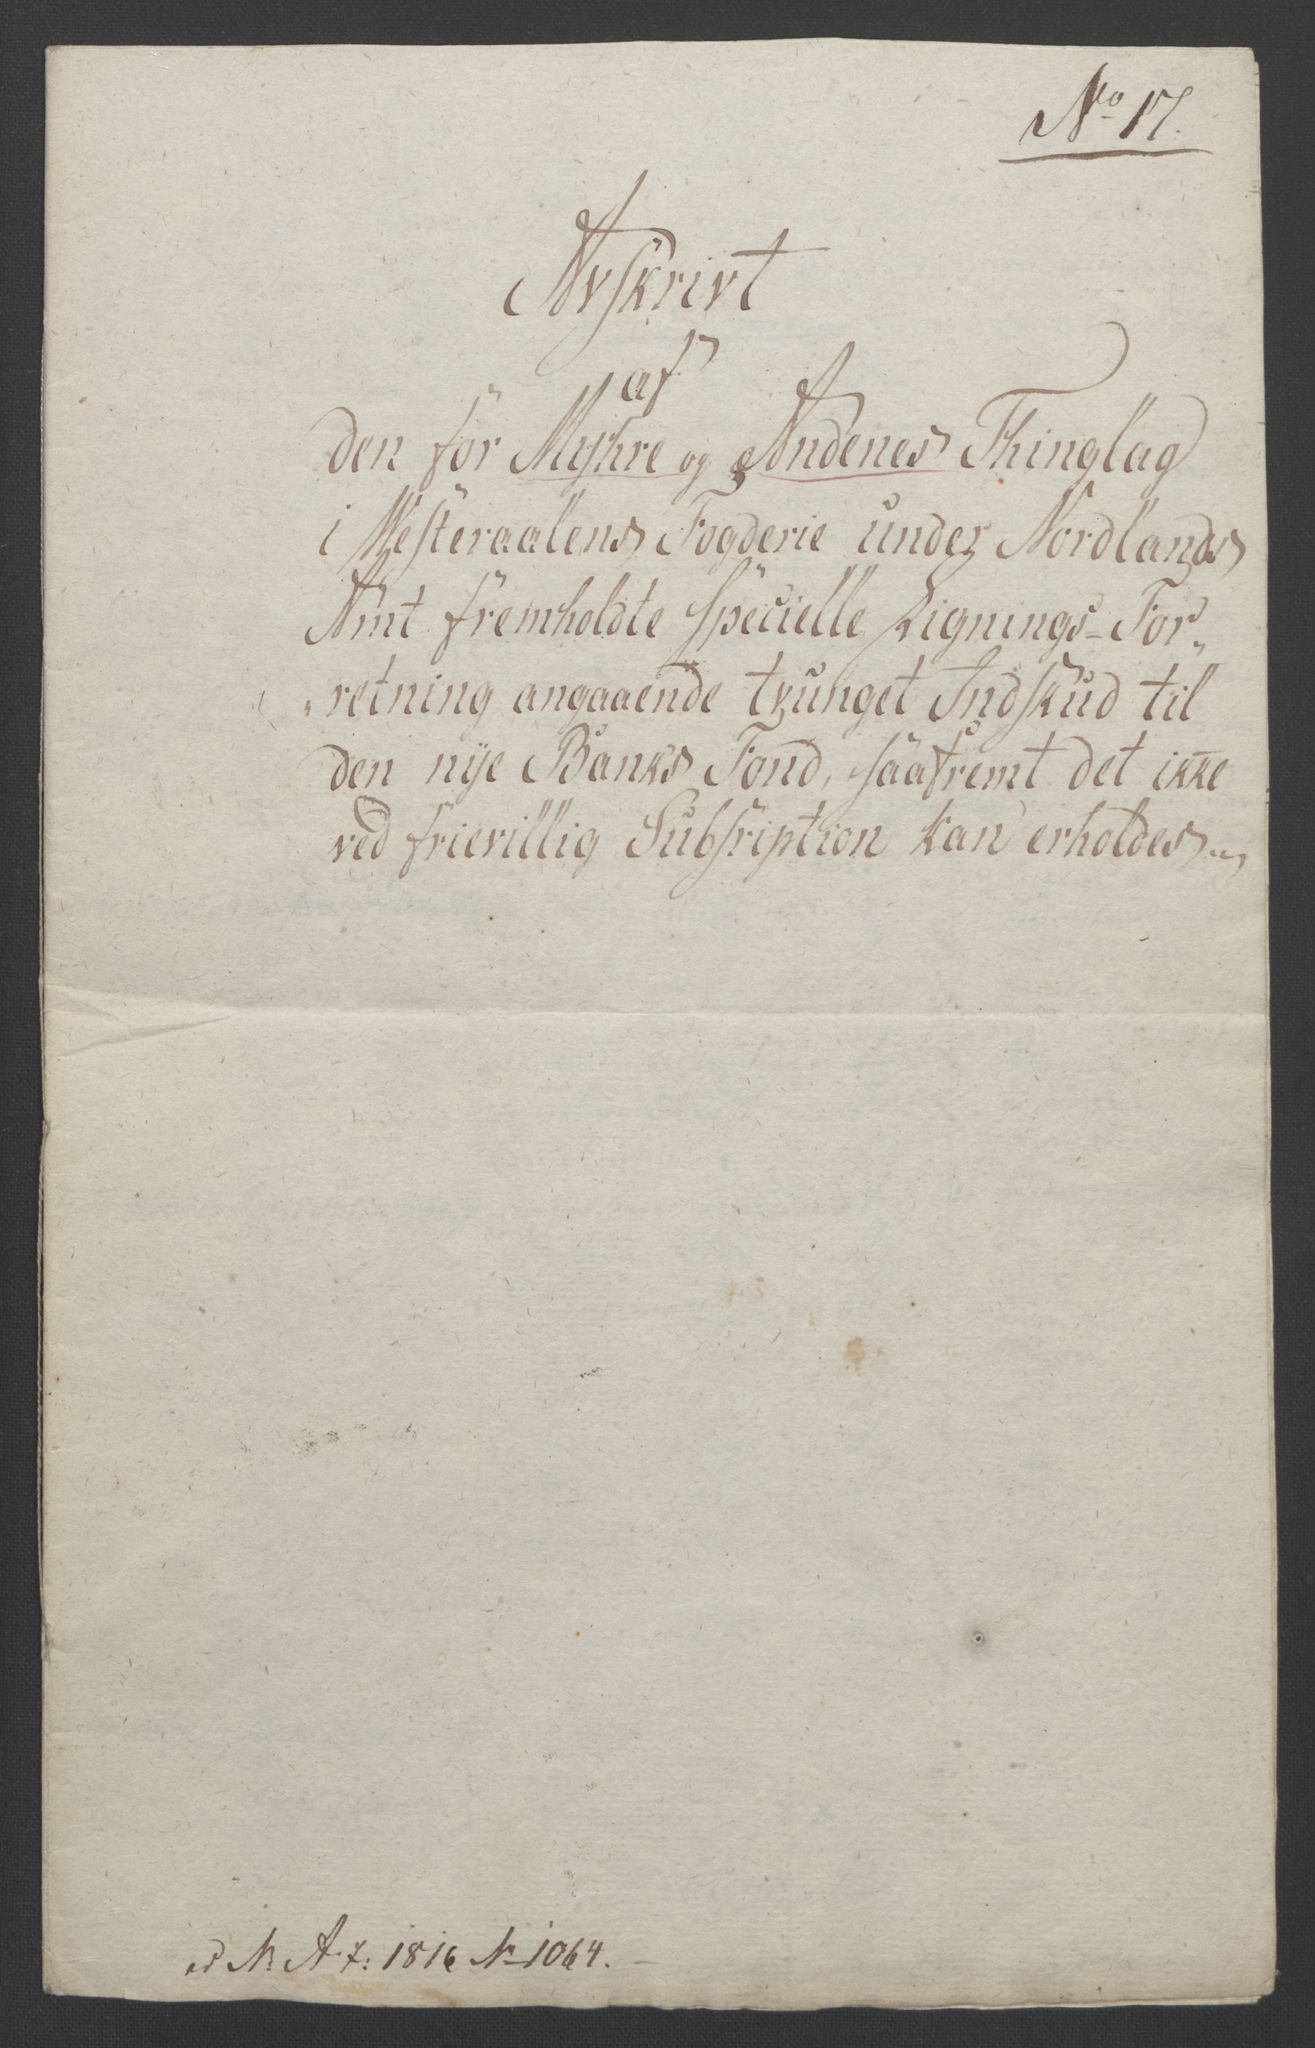 No 17.
Avskrivt
af
den for Myhre og Andenes Thinglag
i Westeraalens Fogderie under Nordlands
Amt fremholdte specielle Lignings-For-
retning angaaende tvunget Indskud til
den nye Banks Fond, saafremt det ikke
ved frievillig Subsription kan erholdes
ad N: A 7: 1816 No 1064.